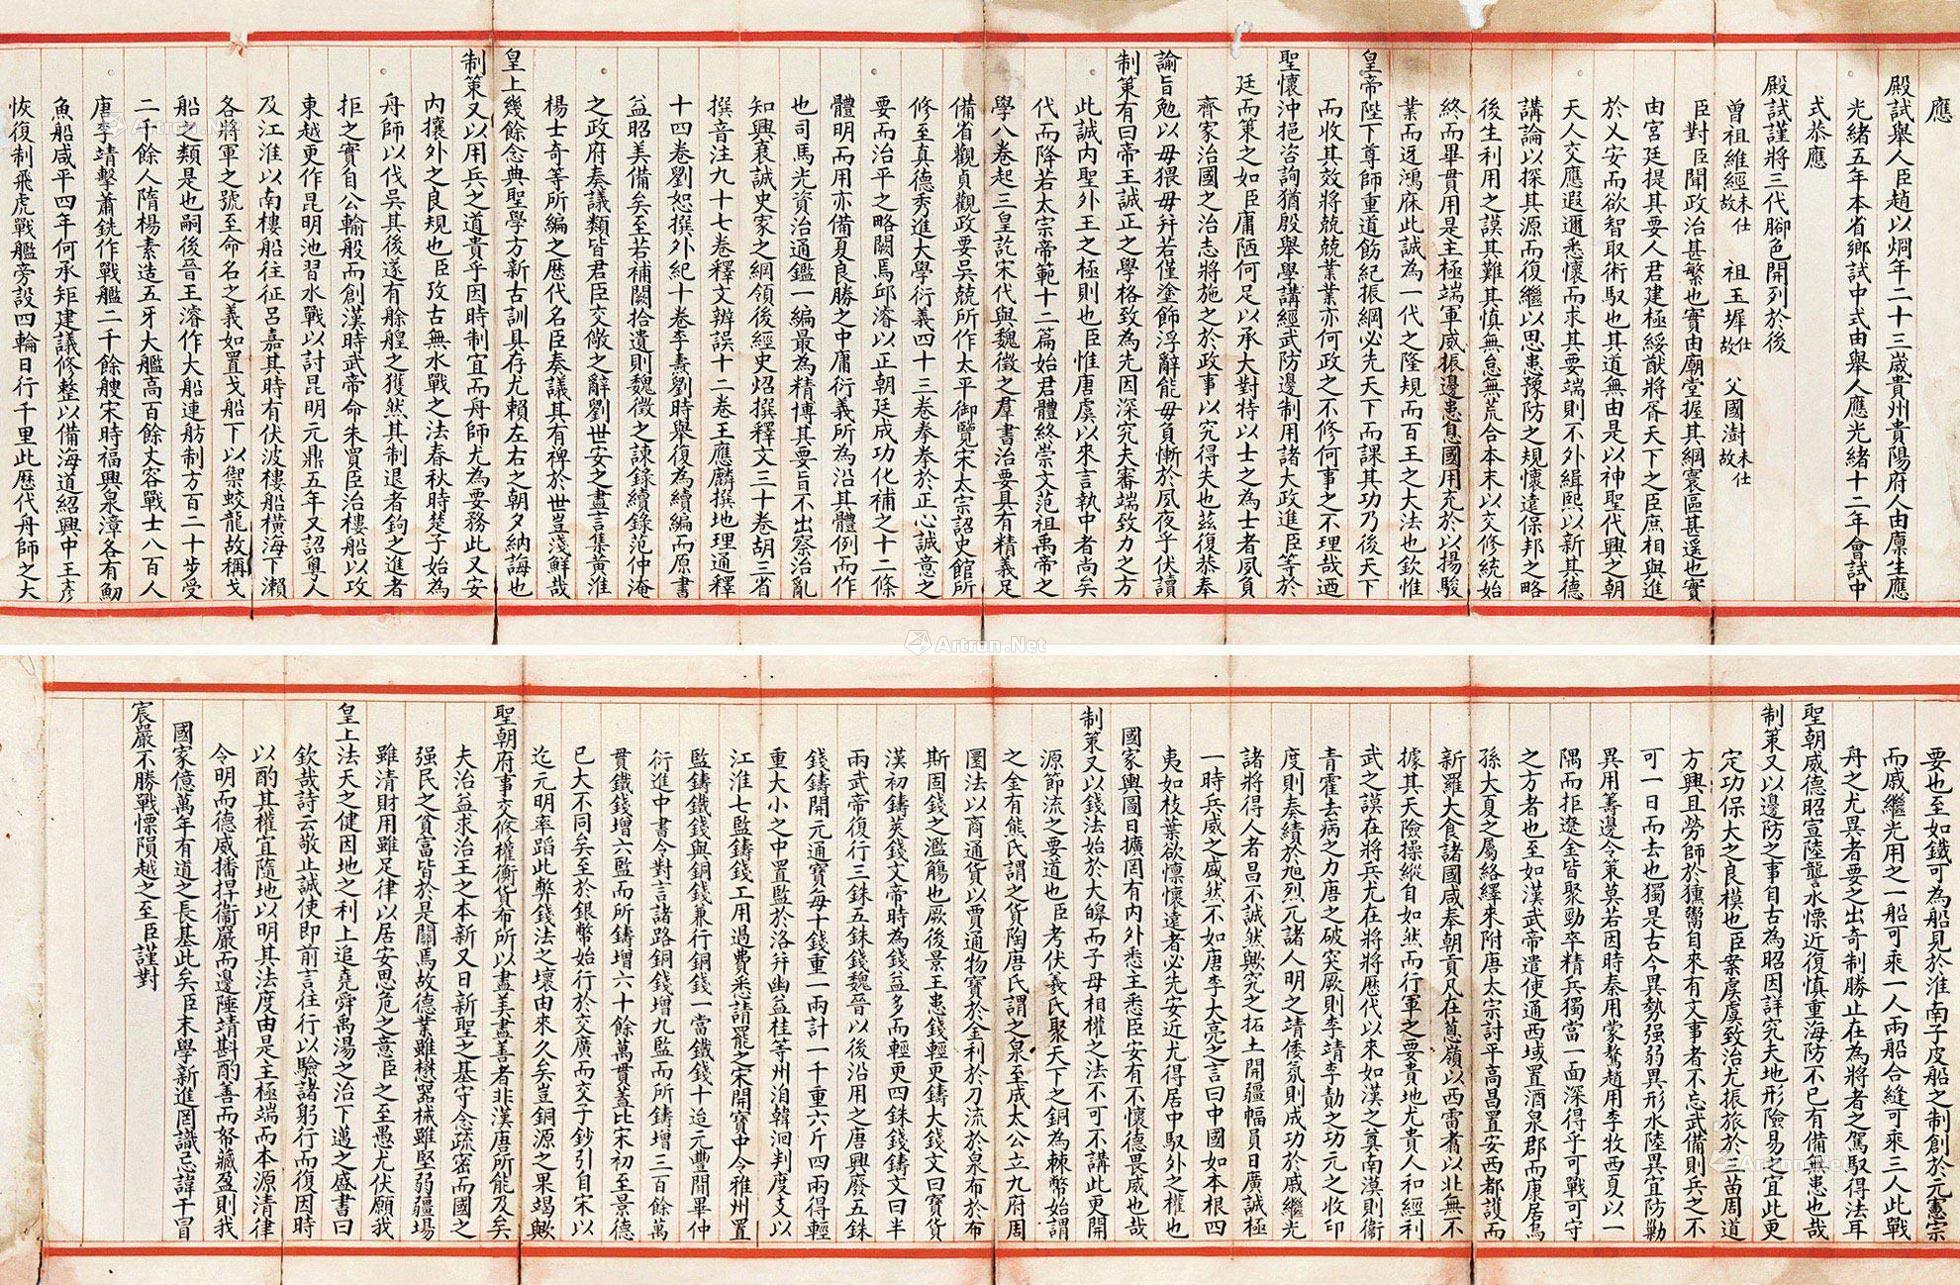 應
殿試舉人臣趙以炯年二十三歲貴州貴陽府人由廩生應
光緒五年本省鄉試中式由舉人應光緒十二年會試中
式恭應
殿試謹將三代腳色開列於後
曾祖維經未仕故 祖玉墀仕故 父國澍未仕故
臣對臣聞政治甚繁也實由廟堂握其綱寰區甚遥也實
由宮廷提其要人君建極綏猷將胥天下之臣庶相與進
於乂安而欲智取術馭也其道無由是以神聖代興之朝
天人交應遐邇悉懷而求其要端則不外緝熙以新其德
講論以探其源而復繼以思患豫防之規懷遠保邦之略
後生利用之謨其難其慎無怠無荒合本末以交修統始
終而畢貫用是主極端軍威振邊患息國用充於以揚駿
業而迓鴻庥此誠為一代之隆規而百王之大法也欽惟
皇帝陛下尊師重道飭紀振綱必先天下而課其功乃後天下
而收其效將兢兢業業亦何政之不修何事之不理哉迺
聖懷沖挹咨詢猶殷舉學講經武防邊制用諸大政進臣等於
廷而策之如臣庸陋何足以承大對特以士之為士者夙負
齊家治國之治志將施之於政事以究得失也茲復恭奉
諭旨勉以毋猥毋幷若僅塗飾浮辭能毋負慚於夙夜乎伏讀
制策有曰帝王誠正之學格致為先因深究夫審端致力之方
此誠內聖外王之極則也臣惟唐虞以來言執中者尚矣
代而降若太宗帝範十二篇始君體終崇文范祖禹帝之
學八卷起三皇訖宋代與魏徵之羣書治要具有精義足
備省觀貞觀政要吳兢所作太平御覽宋太宗詔史館所
修至真德秀進大學衍義四十三卷拳拳於正心誠意之
要而治平之略闕焉邱濬以正朝廷成功化補之十二條
體明而用亦備夏良勝之中庸衍義所為沿其體例而作
也司馬光資治通鑑一編最為精博其要旨不出察治亂
知興衰誠史家之綱領後經史炤撰釋文三十卷胡三省
撰音注九十七卷釋文辨誤十二卷王應麟撰地理通釋
十四卷劉恕撰外紀十卷李燾劉時舉復為續編而原書
益昭美備矣至若補闕拾遺則魏徵之諫錄續錄范仲淹
之政府奏議類皆君臣交儆之辭劉世安之盡言集黃淮
楊士奇等所編之歷代名臣奏議其有裨於世豈淺鮮哉
皇上幾餘念典聖學方新古訓具存尤賴左右之朝夕納誨也
制策又以用兵之道貴乎因時制宜而舟師尤為要務此又安
內攘外之良規也臣攷古無水戰之法春秋時楚子始為
舟師以伐吳其後遂有艅艎之獲然其制退者鉤之進者
拒之實自公輸般而創漢時武帝命朱買臣治樓船以攻
東越更作昆明池習水戰以討昆明元鼎五年又詔粵人
及江淮以南樓船往征呂嘉其時有伏波樓船橫海下瀨
各將軍之號至命名之義如置戈船下以禦蛟龍故稱戈
船之類是也嗣後晉王濬作大船連舫制方百二十步受
二千餘人隋楊素造五牙大艦高百餘丈容戰士八百人
唐李靖擊蕭銑作戰艦二千餘艘宋時福興泉漳各有魛
魚船咸平四年何承矩建議修整以備海道紹興中王彥
恢復制飛虎戰艦旁設四輪日行千里此歷代舟師之大
要也至如鐵可為船見於淮南子皮船之制創於元憲宗
而戚繼光用之一船可乘一人兩船合縫可乘三人此戰
舟之尤異者要之出奇制勝止在為將者之駕馭得法耳
聖朝威德昭宣陸讋水慄近復慎重海防不已有備無患也哉
制策又以邊防之事自古為昭因詳究夫地形險易之宜此更
定功保大之良模也臣案虞虞致治尤振旅於三苗周道
方興且勞師於獯鬻自來有文事者不忘武備則兵之不
可一日而去也獨是古今異勢强弱異形水陸異宜防勦
異用籌邊令策莫若因時秦用蒙驁趙用李牧西夏以一
隅而拒遼金皆聚勁卒精兵獨當一面深得乎可戰可守
之方者也至如漢武帝遣使通西域置酒泉郡而康居烏
孫大夏之屬絡繹來附唐太宗討平高昌置安西都護而
新羅大食諸國咸奉朝貢凡在蔥嶺以西雷者以北無不
據其天險操縱自如然而行軍之要貴地尤貴人和經利
武之謨在將兵尤在將將歷代以來如漢之寘南漠則衞
青霍去病之力唐之破突厥則李靖李勣之功元之收印
度則奏績於旭烈兀諸人明之靖倭氛則成功於戚繼光
諸將得人者昌不誠然歟究之拓土開疆幅員日廣誠極
一時兵威之盛然不如唐李大亮之言曰中國如本根四
夷如枝葉欲懷懷遠者必先安近尤得居中馭外之權也
國家輿圖日擴罔有內外悉王悉臣安有不懷德畏威也哉
制策又以錢法始於大皞而子母相權之法不可不講此更開
源節流之要道也臣考伏羲氏聚天下之銅為棘幣始謂
之金有熊氏謂之貨陶唐氏謂之泉至成太公立九府周
圜法以商通貨以賈通物寶於金利於刀流於泉布於布
斯固錢之濫觴也厥後景王患錢輕更鑄大錢文曰寶貨
漢初鑄莢錢文帝時為錢益多而輕更四銖錢鑄文曰半
兩武帝復行三銖五銖錢魏晉以後沿用之唐興廢五銖
錢鑄開元通寶每十錢重一兩計一千重六斤四兩得輕
重大小之中置監於洛幷幽益桂等州洎韓洄判度支以
江淮七監鑄錢工用過費悉請罷之宋開寶中令雅州置
監鑄鐵錢與銅錢兼行銅錢一當鐵錢十迨元豐間畢仲
衍進中書令對言諸路銅錢增九監而所鑄增三百餘萬
貫鐵錢增六監而所鑄增六十餘萬貫蓋比宋初至景德
已大不同矣至於銀幣始行於交廣而交子鈔引自宋以
迄元明率蹈此弊錢法之壞由來久矣豈銅源之果竭歟
聖朝府事交修權衡貨布所以盡美盡善者非漢唐所能及矣
夫治益求治王之本新又日新聖之基守念疏密而國之
强民之貧富皆於是關焉故德業雖懋器械雖堅弱疆場
雖清財用雖足律以居安思危之意臣之至愚尤伏願我
皇上法天之健因地之利上追堯舜禹湯之治下邁之盛書曰
欽哉詩云敬止誠使即前言往行以驗諸躬行而復因時
以酌其權宜隨地以明其法度由是主極端而本源清律
令明而德威播捍衞嚴而邊陲靖斟酌善而帑藏盈則我
國家億萬年有道之長基此矣臣末學新進罔識忌諱干冒
宸嚴不勝戰慄隕越之至臣謹對
Artron.Net